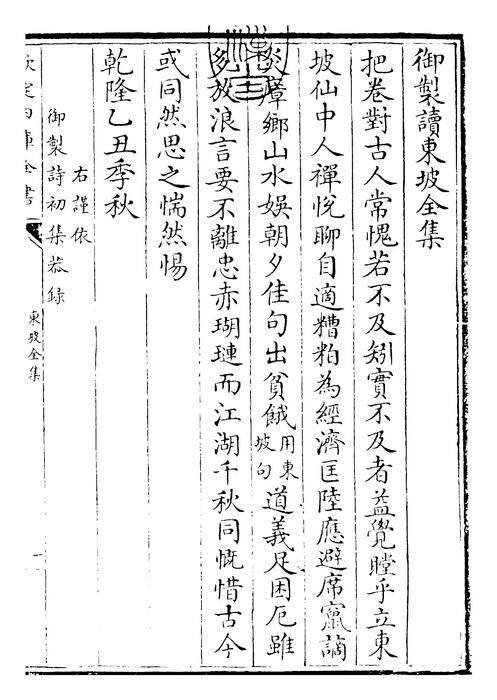 御製讀東坡全集
把卷對古人常愧若不及矧實不及者益覺瞠乎立東
坡仙中人禪悅聊自適糟粕為經濟匡陸應避席竄謫
瘴鄉山水娛朝夕佳句出貧餓用東坡句道義足困厄雖
多放浪言要不離忠赤瑚璉而江湖千秋同慨惜古今
或同然思之惴然惕
乾隆乙丑季秋
右謹依
御製詩初集恭録
欽定四庫全書
東坡全集
一